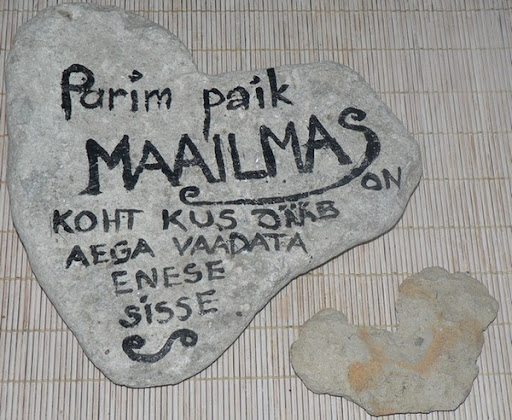 Parim paik
MAAILMAS
ON
KOHT KUS JÄÄB
AEGA VAADATA
ENESE
SISSE